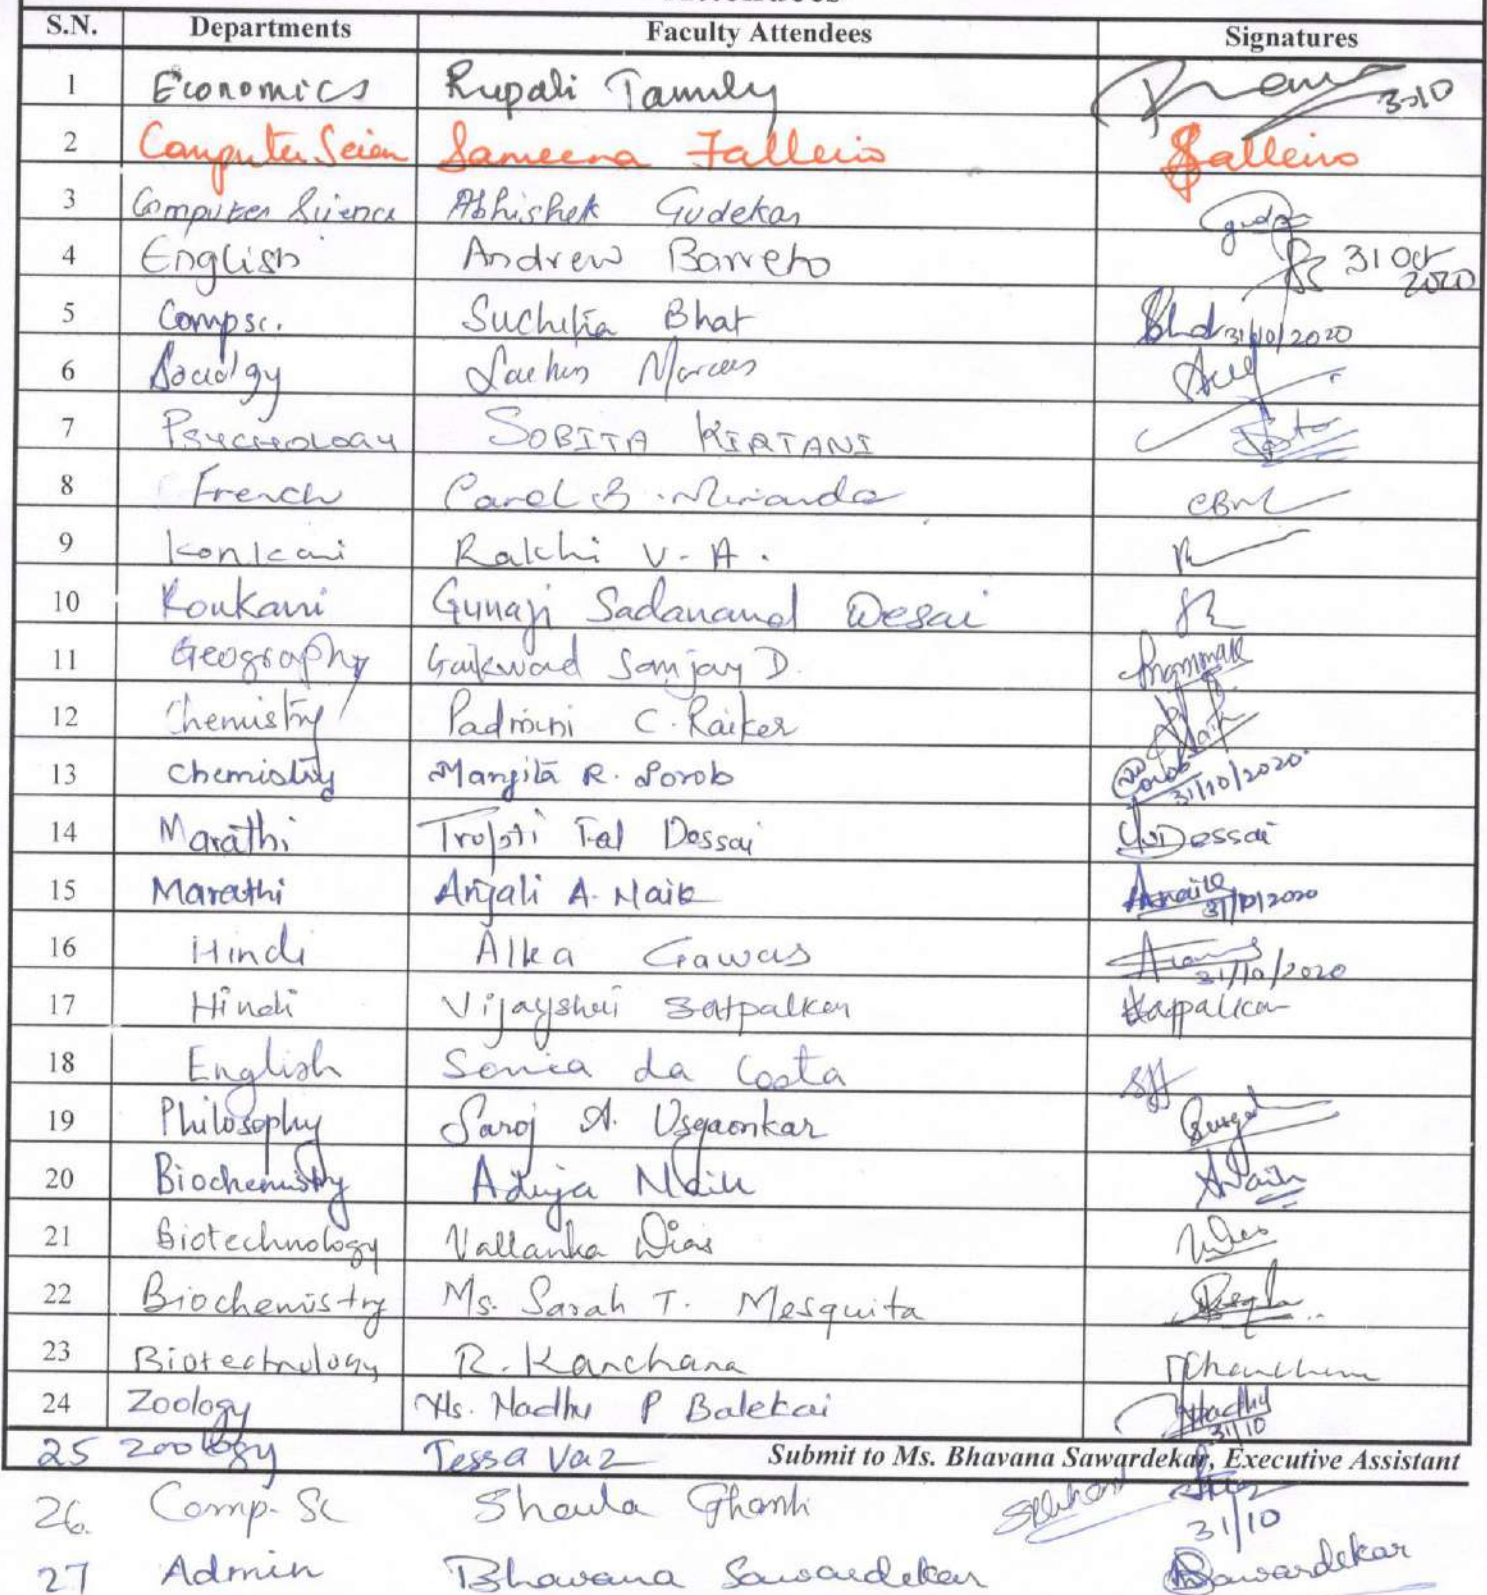 Attendees
S.N. Departments Faculty Attendees Signatures
1 Economics Rupali Tamuly 3-10
2 Computer Scien Sameena Falleiro Falleiro
3 Computer Science Abhishek Gudekar
4 English Andrew Barreto 31 Oct 2020
5 Compsc. Suchitia Bhat 31/10/2020
6 Sociolgy Sachin
7 PSYCHOLOGY SOBITA KIRTANI
8 French Carol B. Miranda CBM
9 Konkani Rakhi V-A.
10 Konkani Gunaji Sadanand Desai
11 Geography Gaikwad Sanjay D.
12 Chemistry Padmini C. Raiker
13 Chemistry Mangita R. Porob Porob 31/10/2020
14 Marathi Trupti Fal Dessai Dessai
15 Marathi Anjali A. Naik Anaik 31/10/2020
16 Hindi Alka Gawas 31/10/2020
17 Hindi Vijayshri Satpalkar
18 English Sonia da Costa
19 Philosophy Saroj A. Usgaonkar
20 Biochemistry Aduja Naik ANaik
21 Biotechnology Vallanka Dias
22 Biochemistry Ms. Sarah T. Mesquita
23 Biotechnology R. Kanchana
24 Zoology Ms. Madhu P Balekai Madhu 31/10
25 Zoology Tessa Vaz Submit to Ms. Bhavana Sawardekar, Executive Assistant
26. Comp. Sc Shaula Ghanti 31/10
27 Admin Bhavana Sawardekar Sawardekar